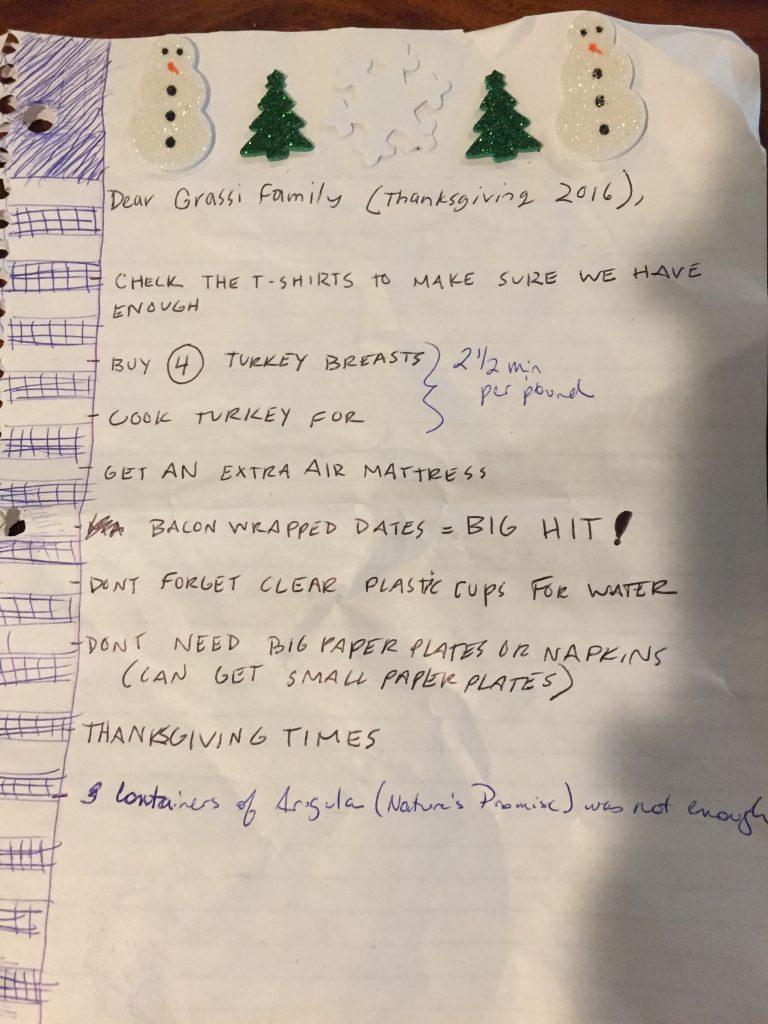 Dear Grassi Family (Thanksgiving 2016),
- CHECK THE T-SHIRTS TO MAKE SURE WE HAVE
ENOUGH
- BUY 4 TURKEY BREASTS } 2 1/2 min
per pound
- COOK TURKEY FOR
- GET AN EXTRA AIR MATTRESS
- BACON WRAPPED DATES = BIG HIT!
- DONT FORGET CLEAR PLASTIC CUPS FOR WATER
- DONT NEED BIG PAPER PLATES OR NAPKINS
(CAN GET SMALL PAPER PLATES)
- THANKSGIVING TIMES
- 3 Containers of Arugula (Nature's Promise) was not enough